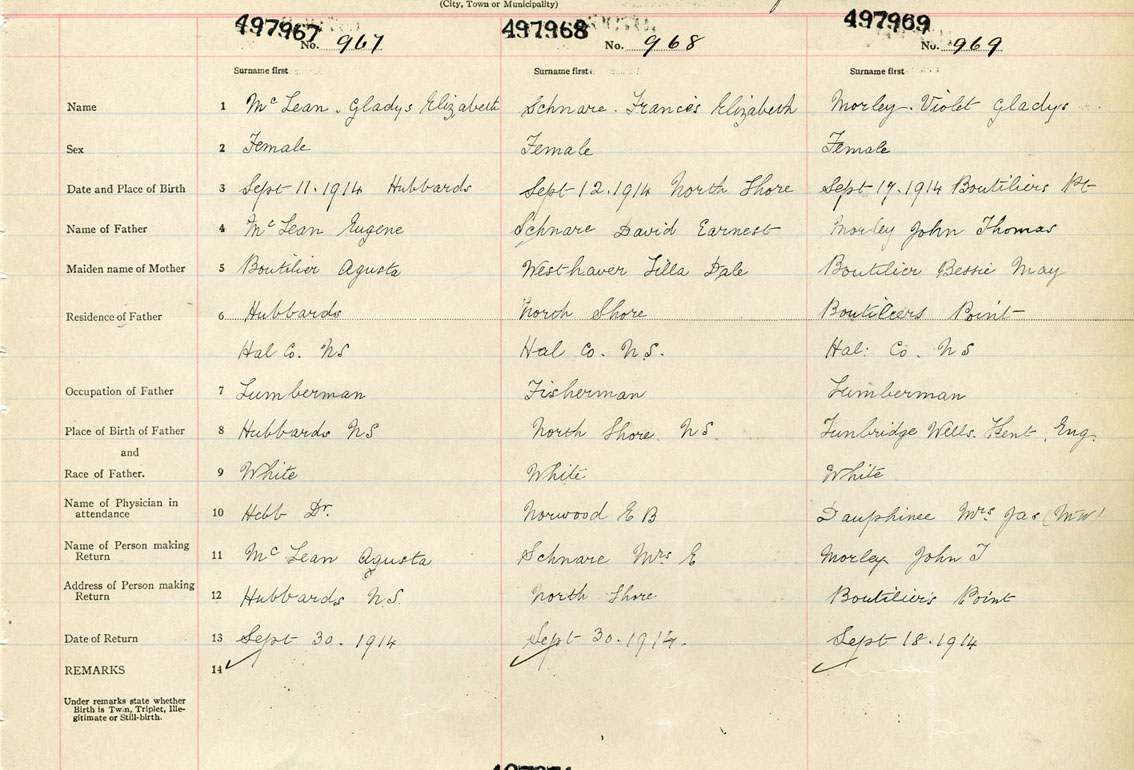 (City, Town or Municipality)
497967 497968 497969
No. 967 No. 968 No. 969
Surname first Surname first Surname first
Name 1 Mc Lean Gladys Elizabeth Schnare Frances Elizabeth Morley Violet Gladys
Sex 2 Female Female Female
Date and Place of Birth 3 Sept 11. 1914 Hubbards Sept 12. 1914 North Shore Sept 17. 1914 Boutiliers Pt
Name of Father 4 Mc Lean Eugene Schnare David Earnest Morley John Thomas
Maiden name of Mother 5 Boutilier Agusta Westhaver Lilla Dale Boutilier Bessie May
Residence of Father 6 Hubbards North Shore Boutiliers Point
Hal Co. NS Hal Co. N.S. Hal: Co. NS
Occupation of Father 7 Lumberman Fisherman Lumberman
Place of Birth of Father 8 Hubbards NS North Shore NS Tunbridge Wells. Kent, Eng.
and
Race of Father. 9 White White White
Name of Physician in
attendance 10 Hebb Dr. Norwood E B Dauphinee Mrs Jas (MW)
Name of Person making
Return 11 Mc Lean Agusta Schnare Mrs E Morley John T
Address of Person making
Return 12 Hubbards N.S. North Shore Boutiliers Point
Date of Return 13 Sept 30. 1914 Sept 30. 1914. Sept 18. 1914
REMARKS 14
Under remarks state whether
Birth is Twin, Triplet, Ille-
gitimate or Still-birth.